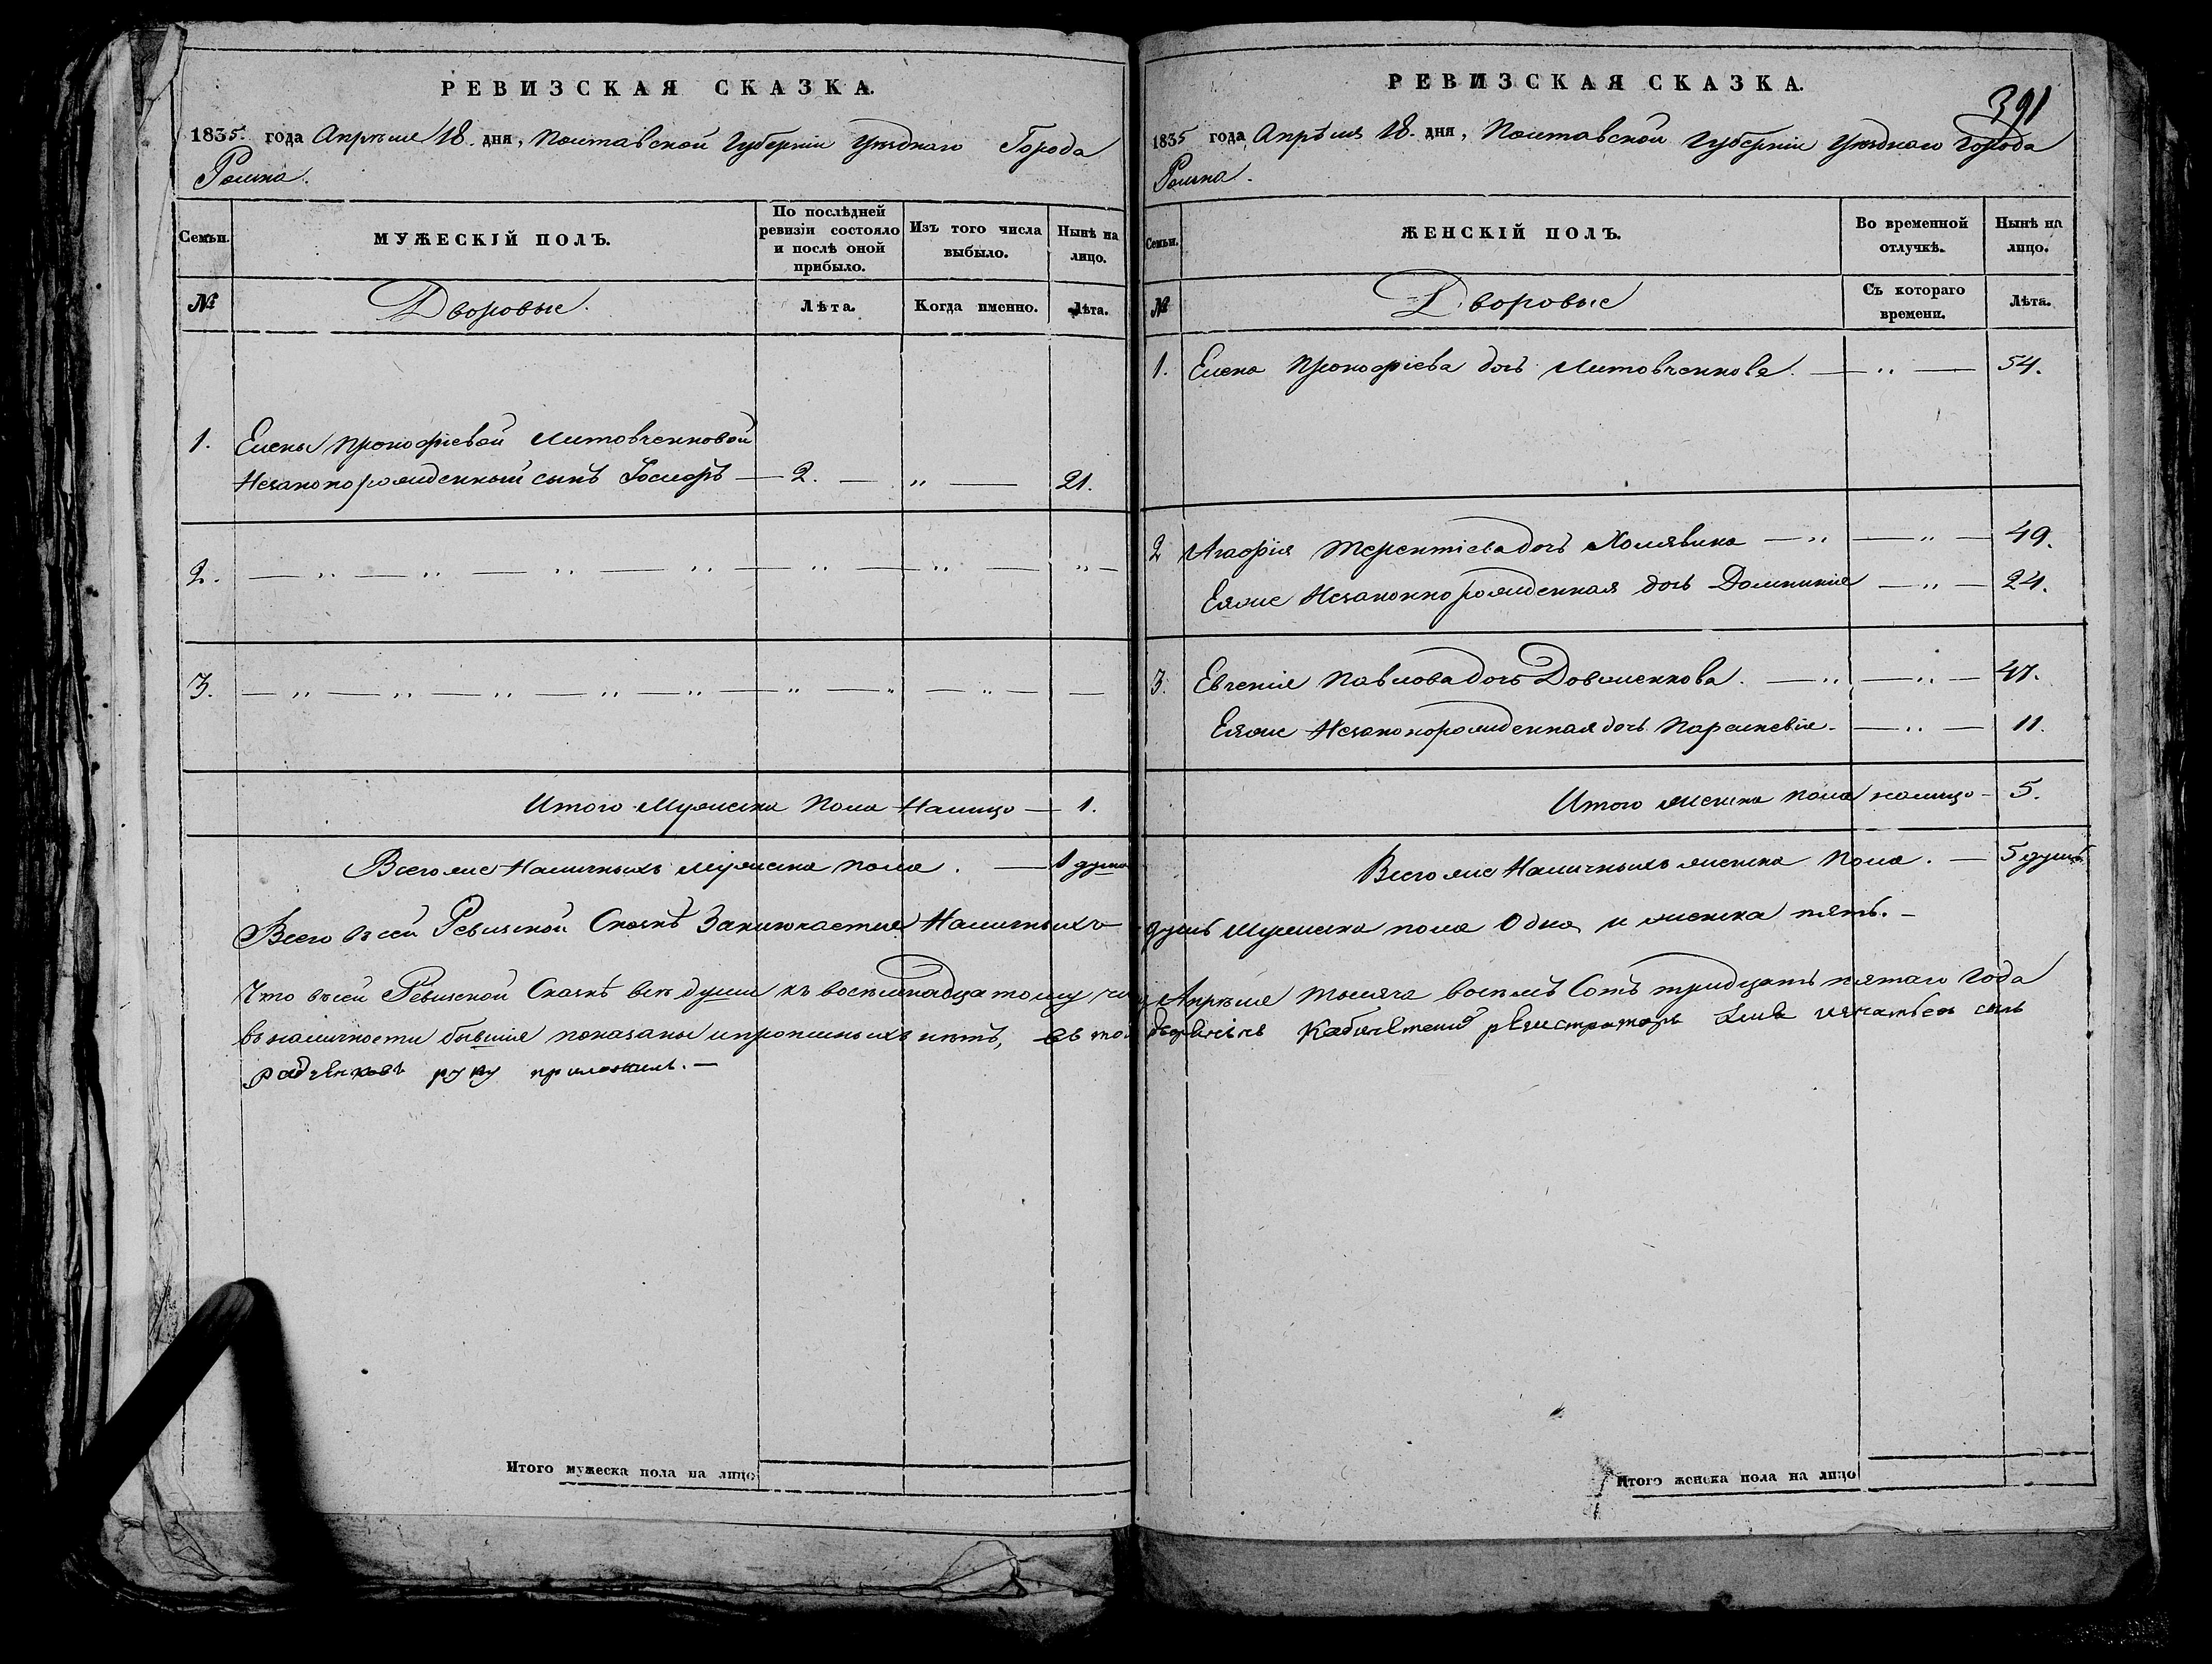 РЕВИЗСКАЯ СКАЗКА.
1835. года Апрѣля 18. дня, Полтавской Губерніи Уѣзднаго Города
Ромна.
Семьи.
МУЖЕСКІЙ ПОЛЪ.
По послѣдней
ревизіи состояло
и послѣ оной
прибыло.
Изъ того числа
выбыло.
Нынѣ на
лицо.
№
Дворовые.
Лѣта.
Когда именно.
Лѣта.
1. Елены Прокофіевой Литовченковой
Незаконорожденный сынъ Іосифъ — 2. — „ — 21.
2. — „ — „ — „ — „ — „ — „ — „ —
3. — „ — „ — „ — „ — „ — „ — „ — „ — —
Итого Мужеска Пола Налицо — 1.
Всего же Наличныхъ мужеска пола. — 1 душа
РЕВИЗСКАЯ СКАЗКА.
391
1835 года Апрѣля 18. дня, Полтавской Губерніи Уѣзднаго Города
Ромна.
Семьи.
ЖЕНСКІЙ ПОЛЪ.
Во временной
отлучкѣ.
Нынѣ на
лицо.
№
Дворовые
Съ котораго
времени.
Лѣта.
1. Елена Прокофіева дочь Литовченкова. — „ — 54.
2 Агафія Терентіева дочь Холявина — „ — „ — 49.
Еяже Незаконнорожденная дочь Домникія — „ — 24.
3. Евгенія Павлова дочь Довженкова. — „ — „ — 47.
Еяже Незаконорожденная дочь Параскевія. — „ — 11.
Итого женска пола налицо — 5.
Всего же Наличныхъ женска Пола. — 5 душъ
Всего въ сей Ревизской Сказкѣ Заключается Наличныхъ душъ Мужеска пола Одна и женска пять. —
Что въ сей Ревизской Сказкѣ всѣ души къ восемнадцатому числу Апрѣля тысяча восемь Сотъ тридцать пятаго Года
въ наличности бывшія показаны и прописныхъ нѣтъ, въ том Коллежскій регистраторъ сынъ
руку приложилъ. —
Итого мужеска пола на лицо
Итого женска пола на лицо